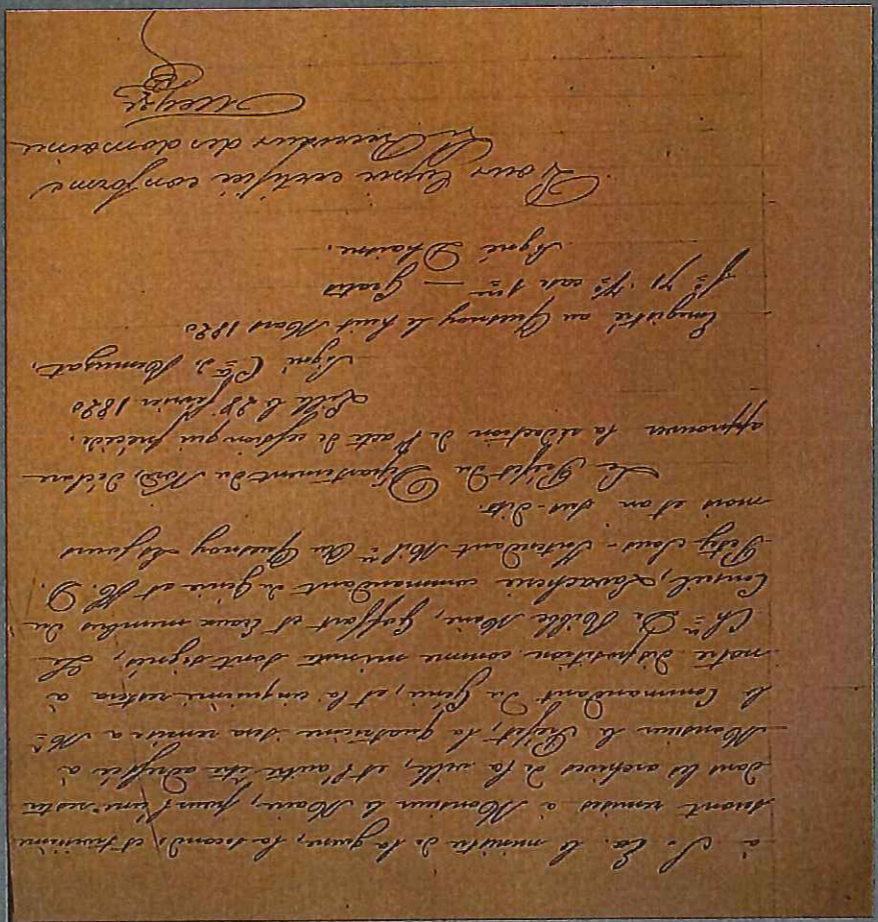 à S. Ex. le ministre de la guerre, la seconde et troisième
seront remises à Monsieur le Maire, pour l'une rester
dans les archives de la ville, et l'autre être adressée à
Monsieur le Préfet, la quatrième sera remise à Mr.
le Commandant du Génie, et la cinquième restera à
notre disposition comme minute. Sont signés, Le
Ch.er De Nible Maire, Goffart et Evaux membres du
Conseil, Lavacherie commandant du génie et M. D.
Pety Sous-Intendant Mil.re Au Quesnoy les jours
mois et an sus-dits.
Le Préfet du Département du Nord, déclare
approuver la rédaction de l'acte de cession qui précède.
Lille le 28 février 1820
Signé C.te de Remusat.
Enregistré au Quesnoy le huit Mars 1820
f.o 71 v.o case 1re — Gratis
Signé Dhaisne.
Pour copie certifiée conforme
Le Receveur des domaines